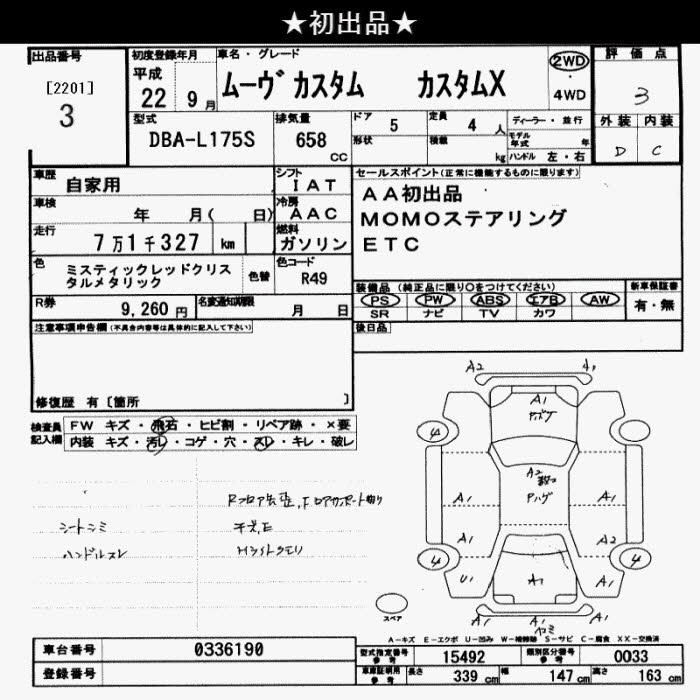 ★初出品★
出品番号
[2201]
3
初度登録年月
平成
22 9月
車名・グレード
ムーヴカスタム カスタムX
2WD
・
4WD
評価点
3
外装 内装
D C
型式
DBA-L175S
排気量
658
cc
ドア
5
定員
4人
ディーラー・並行
形状
積載
kg
モデル年式 年
ハンドル 左・右
車歴
自家用
シフト
IAT
車検
年 月( 日)
冷房
AAC
走行
7万1千327 km
燃料
ガソリン
色
ミスティックレッドクリスタルメタリック
色替
色コード
R49
R券
9,260円
名変通知期限
月 日
セールスポイント(正常に機能するものに限ります)
AA初出品
MOMOステアリング
ETC
装備品(純正品に限り○をつけてください)
PS PW ABS エアB AW
SR ナビ TV カワ
新車保証書
有・無
後日品
注意事項申告欄(不具合内容等は具体的に記入して下さい)
修復歴 有〔箇所 〕
検査員記入欄
FW キズ・飛石・ヒビ割・リペア跡・×要
内装 キズ・汚レ・コゲ・穴・スレ・キレ・破レ
シートシミ
ハンドルスレ
A2 A1
A1
4
A2
A1 A1
A1 A2
4 4
U1 A1 A1
A1 A1
スペア
A-キズ E-エクボ U-凹み W-補修跡 S-サビ C-腐食 XX-交換済
車台番号
0336190
登録番号
型式指定番号
参考
15492
類別区分番号
参考
0033
車庫証明用
参考
長さ
339 cm
幅
147 cm
高さ
163 cm